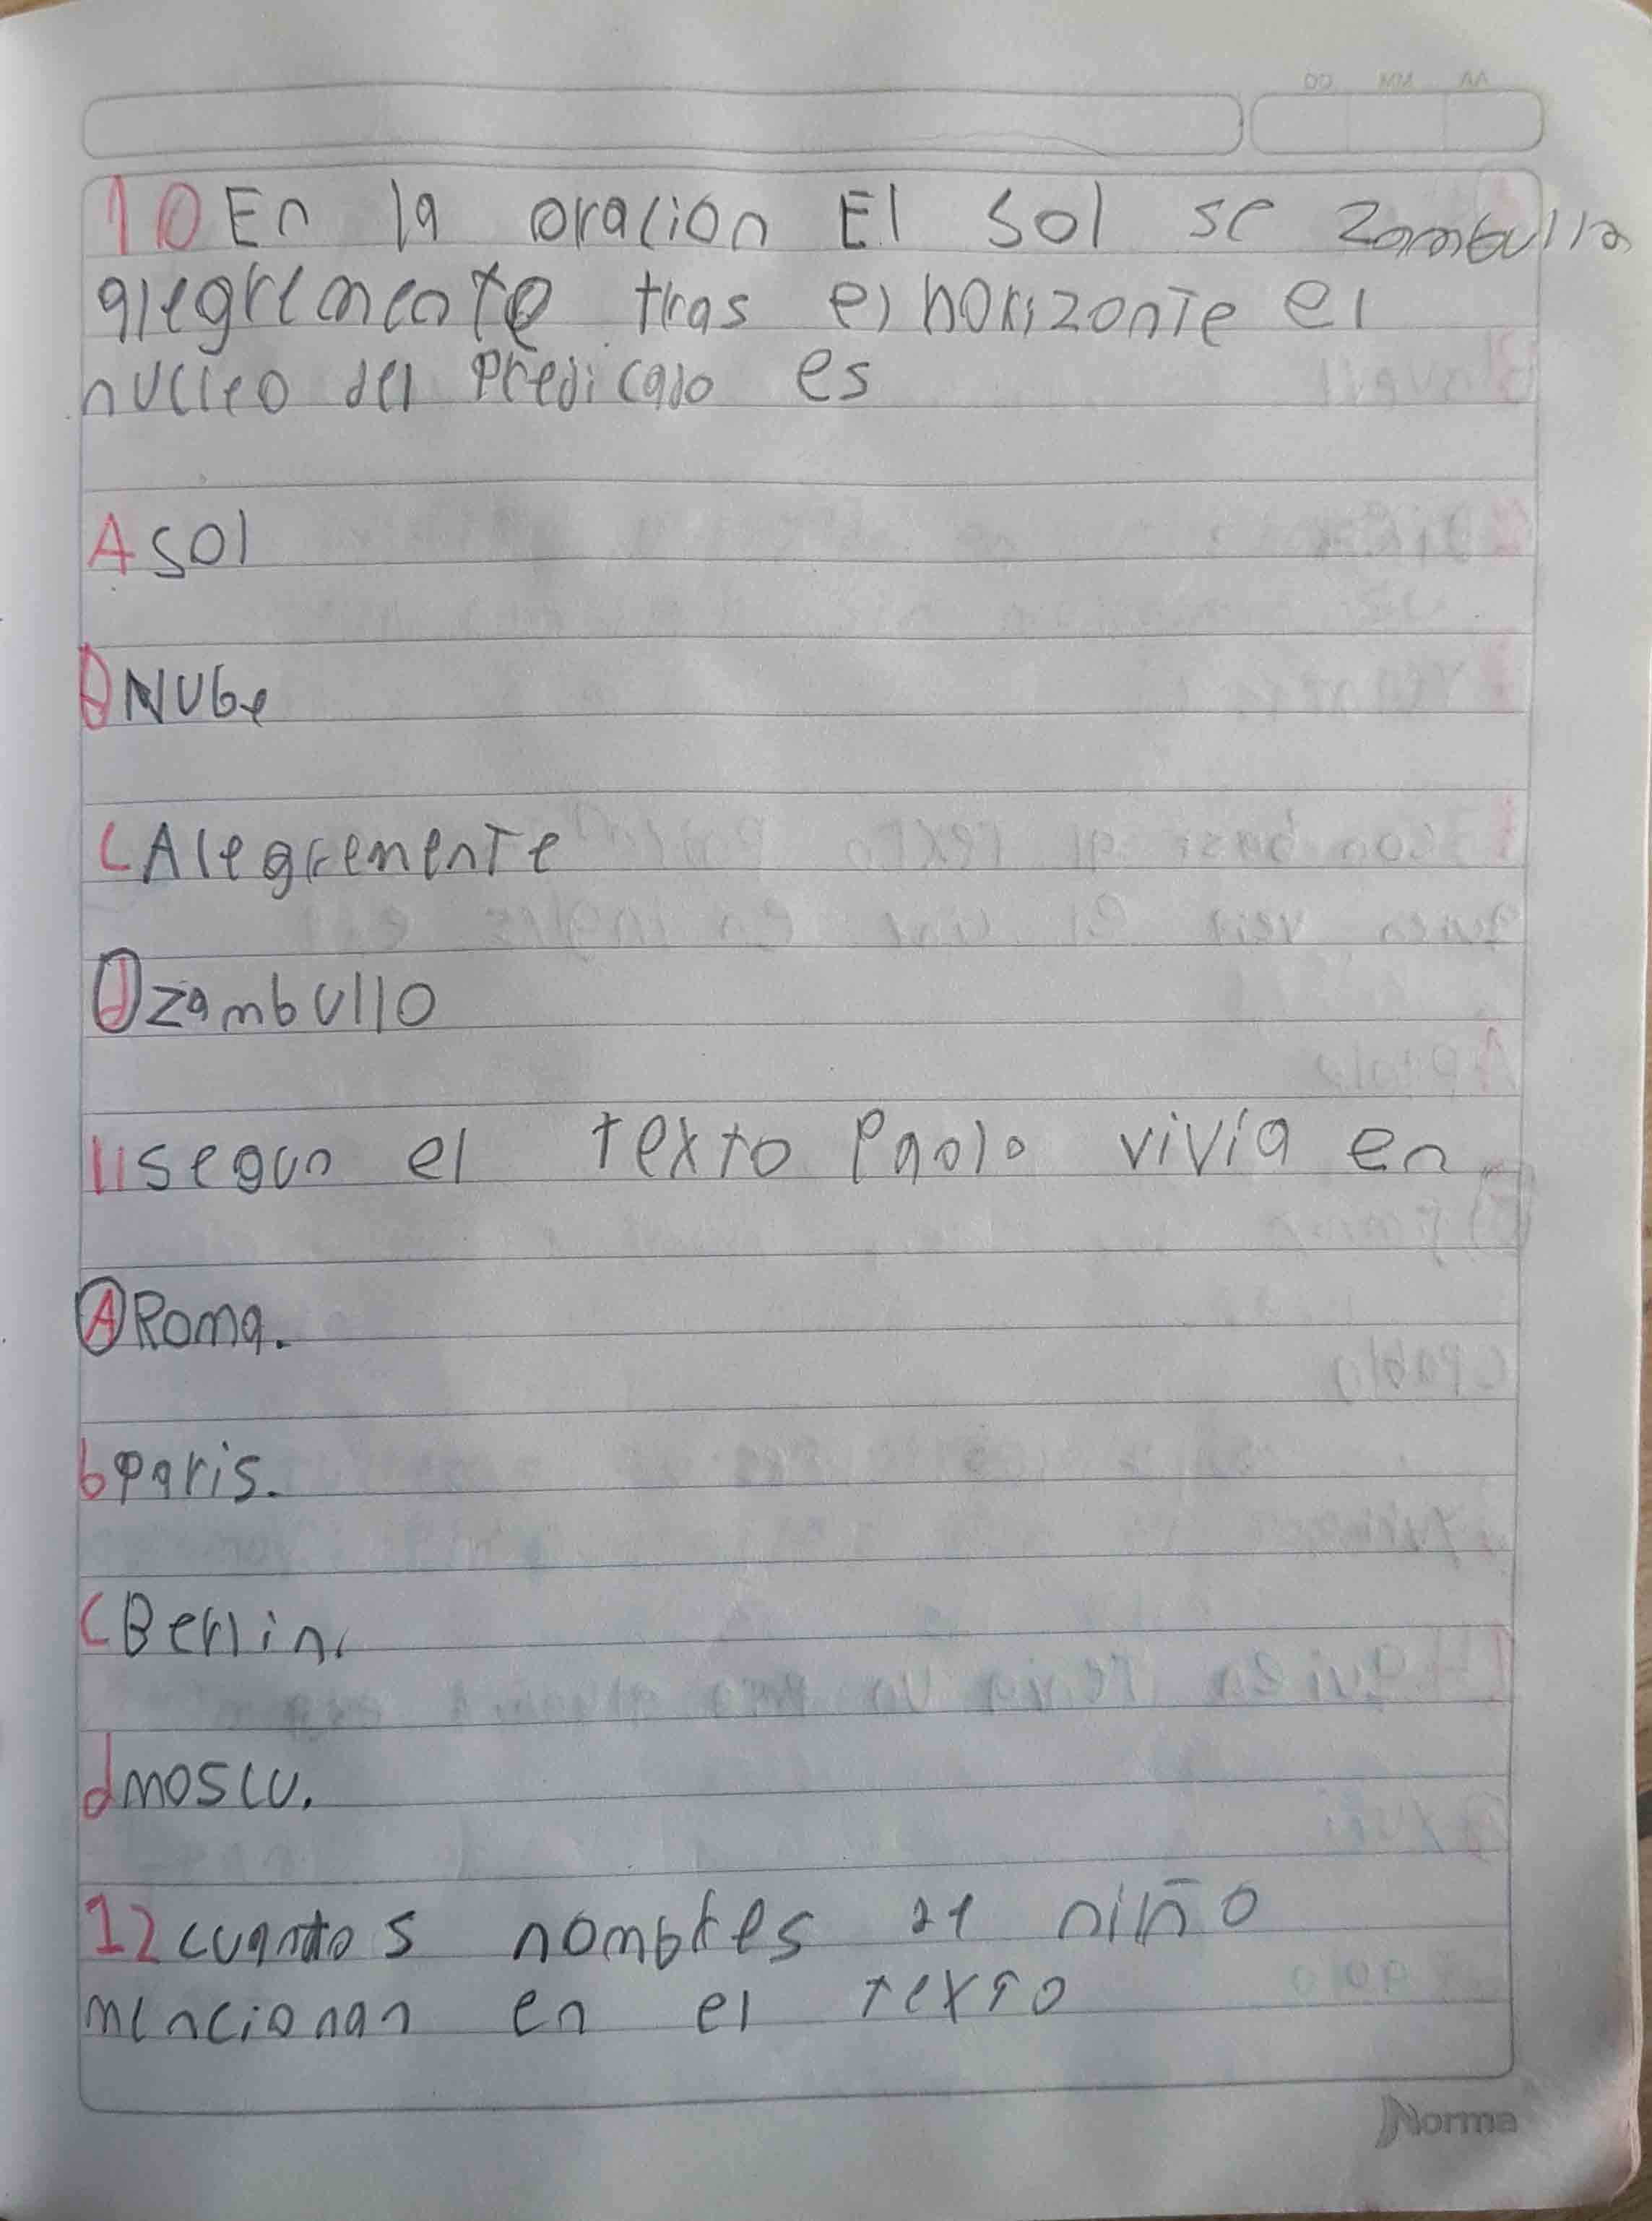 10 En la oración El sol se zambulla
alegremente tras el horizonte el
nucleo del predicado es
A sol
B Nube
C Alegremente
d zambullo
11 segun el texto Paolo vivía en
A Roma.
b Paris.
C Berlin.
d moscu.
12 cuantos nombres de niño
mencionan en el texto
Norma